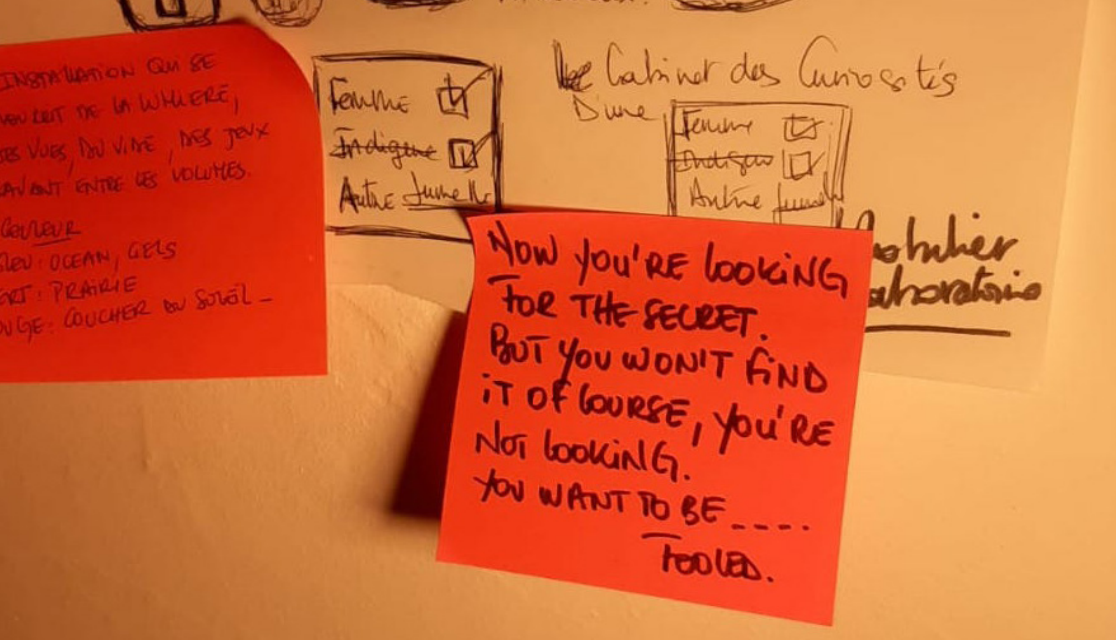 INSTALLATION QUI SE
DE LA LUMIERE,
DES VUES, DU VIDE, DES JEUX
AVANT ENTRE LES VOLUMES.
COULEUR
BLEU: OCEAN, CIELS
VERT: PRAIRIE
ROUGE: COUCHER DU SOLEIL -
Femme
Indigène
Autre Jumelle
Le Cabinet des Curiosités
D'une
Femme
Indigène
Autre
NOW YOU'RE LOOKING
FOR THE SECRET.
BUT YOU WON'T FIND
IT OF COURSE, YOU'RE
NOT LOOKING.
YOU WANT TO BE ....
FOOLED.